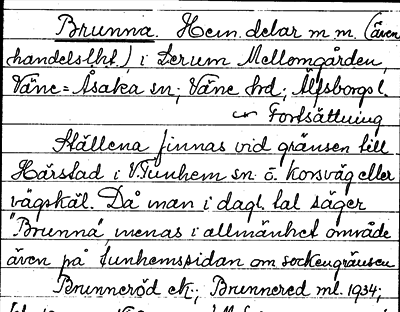 Brunna. Hem.delar m m. (även
handelslht.) i Lerum Mellomgården,
Väne-Åsaka sn; Väne hd; Älfsborgs l.
Fortsättning
Ställena finnas vid gränsen till
Härstad i V.Tunhem sn. o. korsväg eller
vägskäl. Då man i dagl. tal säger
"Brunna", menas i allmänhet område
även på Tunhemssidan om sockengränsen
Brunneröd ek.; Brunnered ml. 1934;